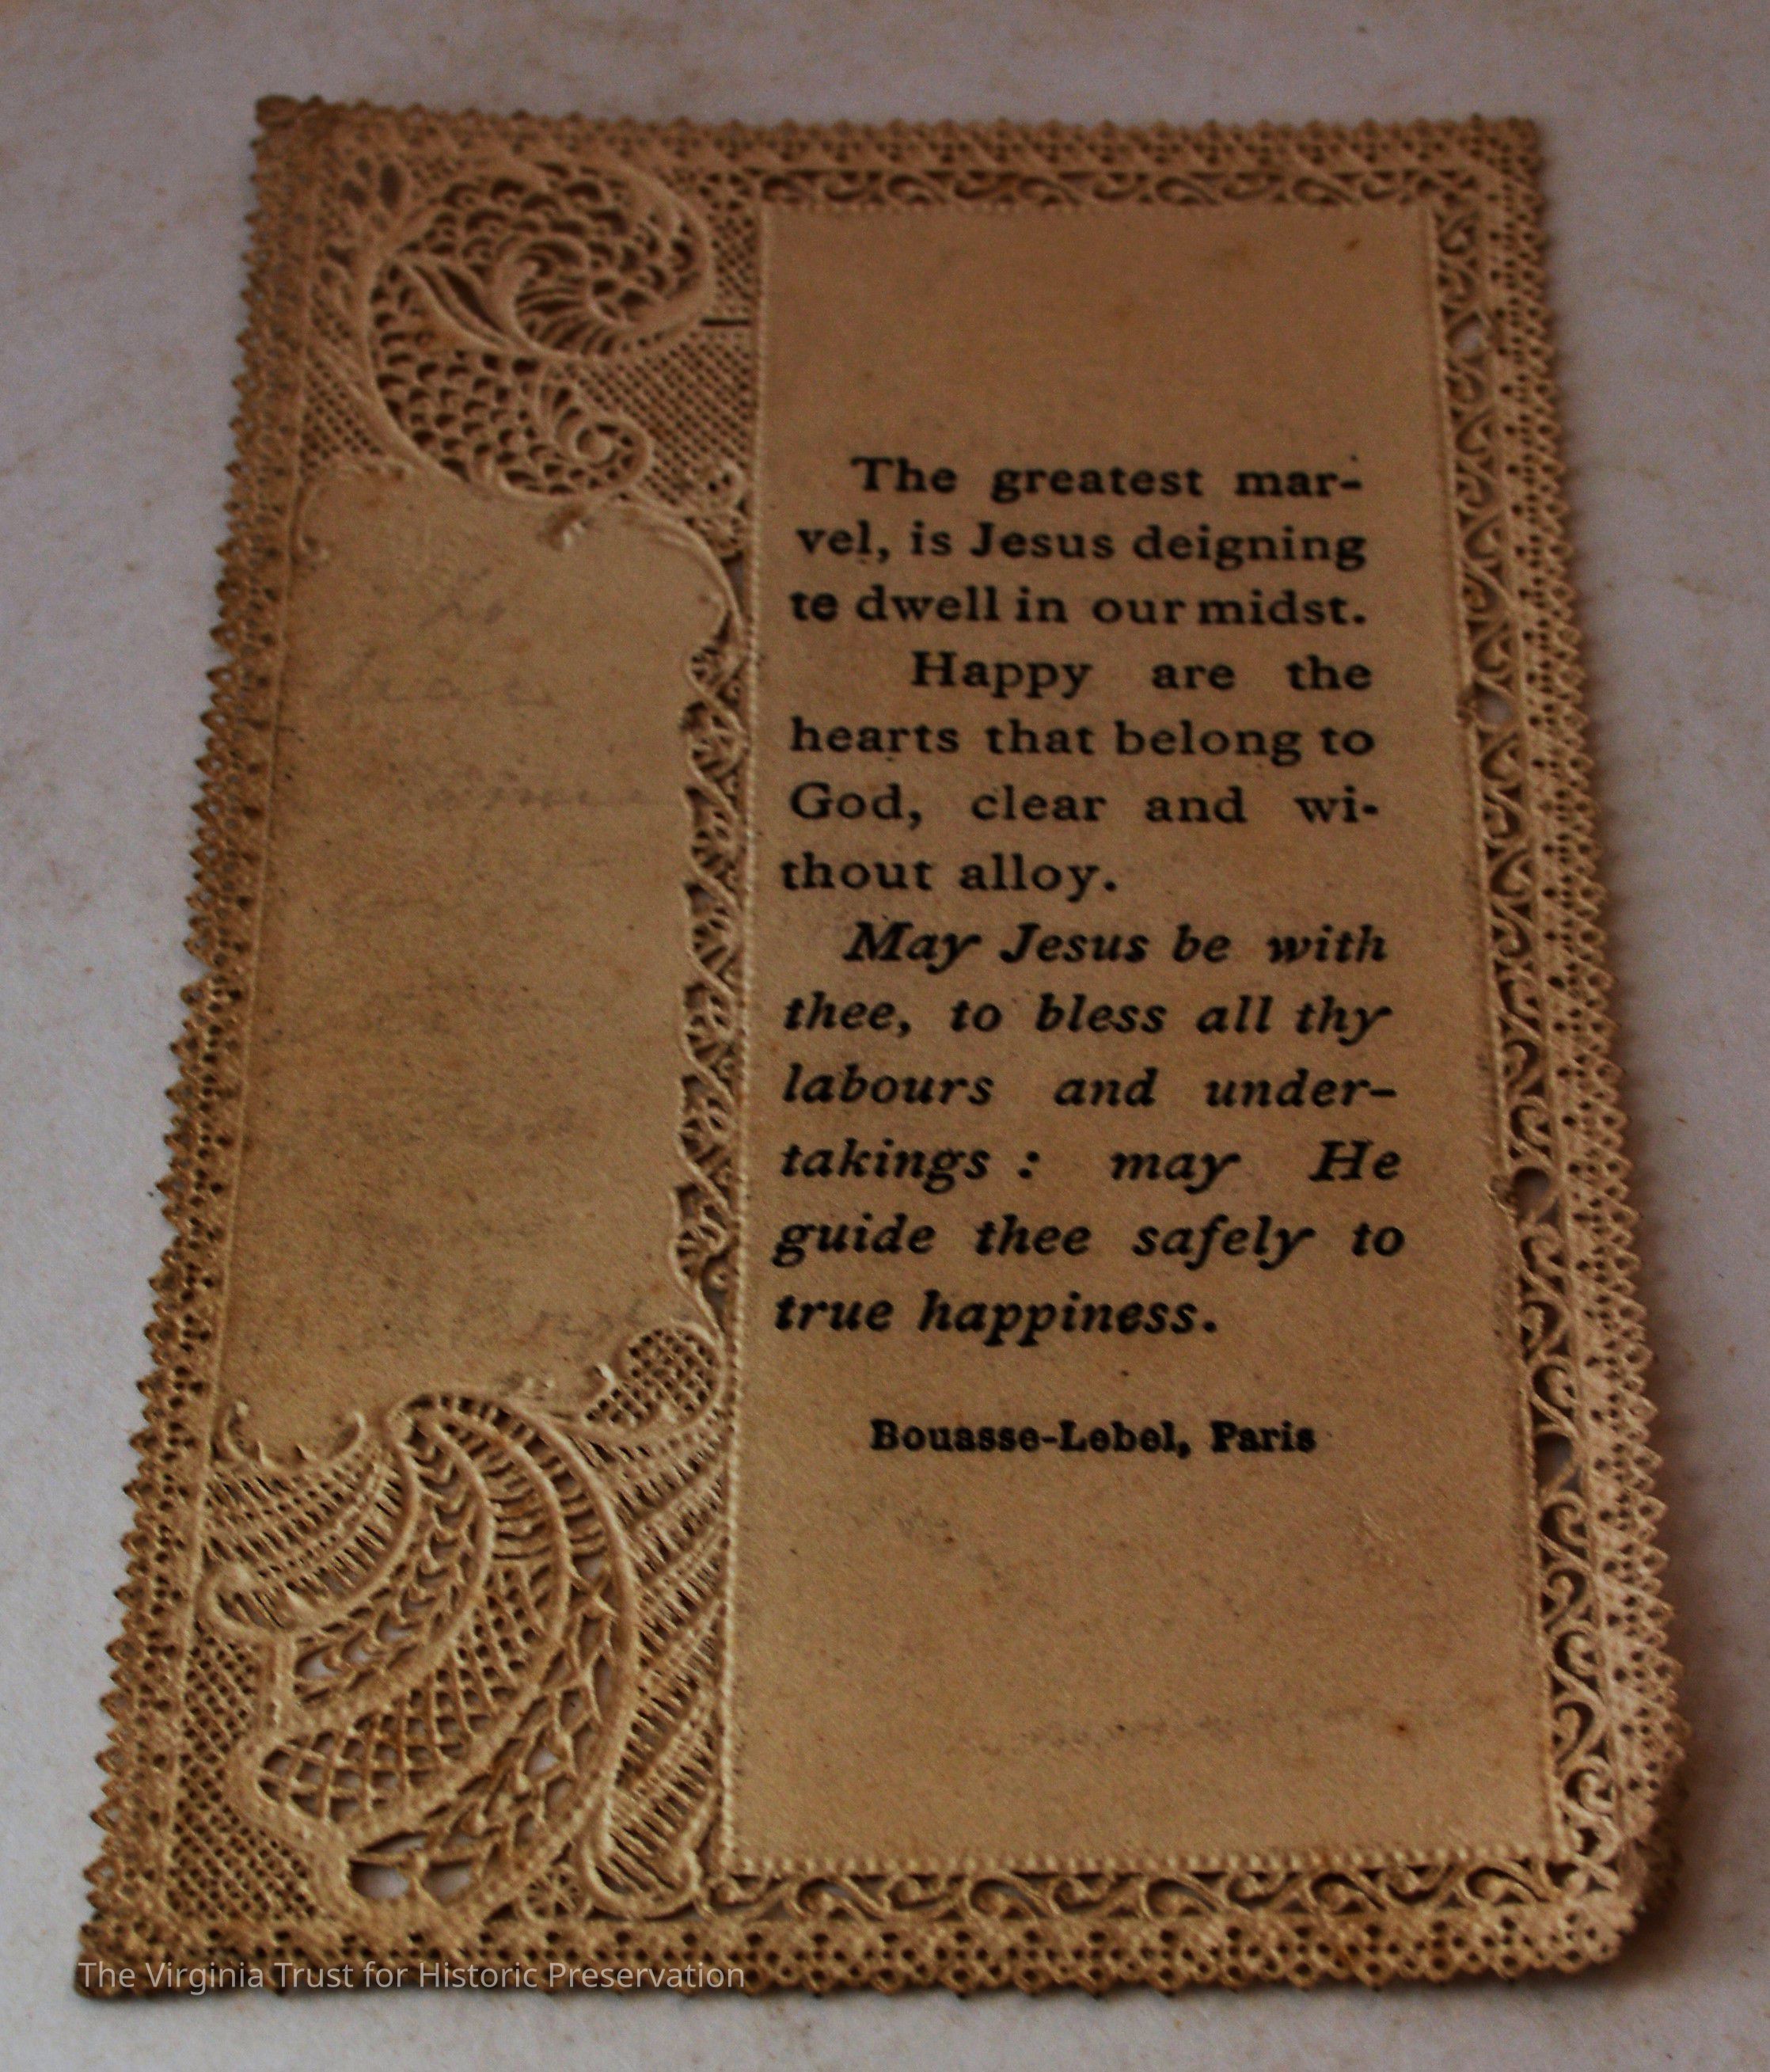 The greatest mar-
vel, is Jesus deigning
te dwell in our midst.
Happy are the
hearts that belong to
God, clear and wi-
thout alloy.
May Jesus be with
thee, to bless all thy
labours and under-
takings : may He
guide thee safely to
true happiness.
Bouasse-Lebel, Paris
The Virginia Trust for Historic Preservation